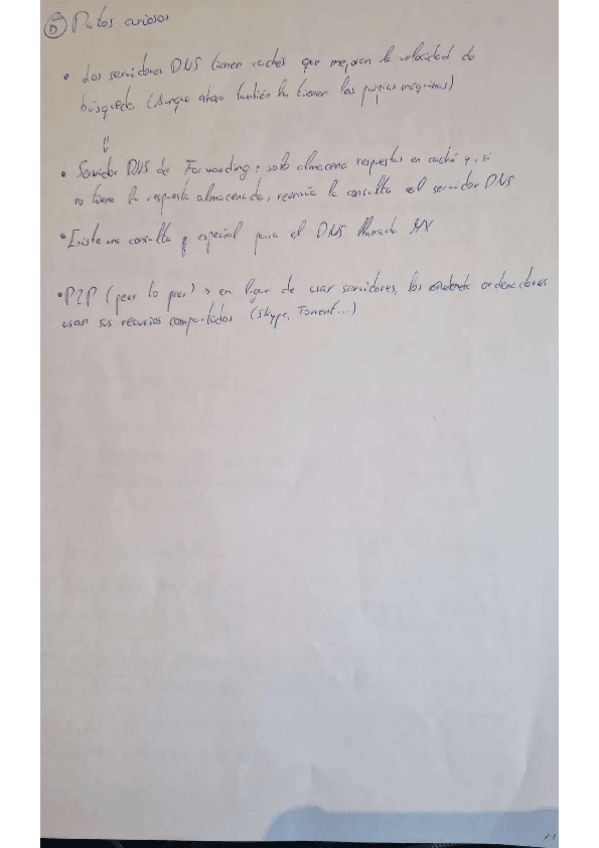 ⑤ Datos curiosos
• Los servidores DNS tienen cachés que mejoran la velocidad de
búsqueda. (Aunque ahora también la tienen las propias máquinas)
⇓
• Servidor DNS de Forwarding: solo almacena respuestas en caché y, si
no tiene la respuesta almacenada, reenvía la consulta al servidor DNS
• Existe una consulta especial para el DNS llamada MX
• P2P (peer to peer) → en lugar de usar servidores, los ordenadores
usan sus recursos compartidos (Skype, Torrent...)